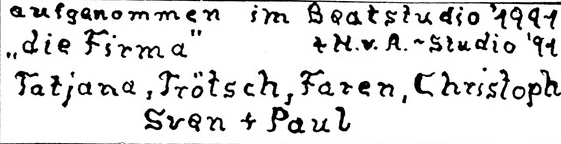 aufganommen im Beatstudio '1991
„die Firma" + H.v.A.-Studio '91
Tatjana, Trötsch, Faren, Christoph
Sven + Paul